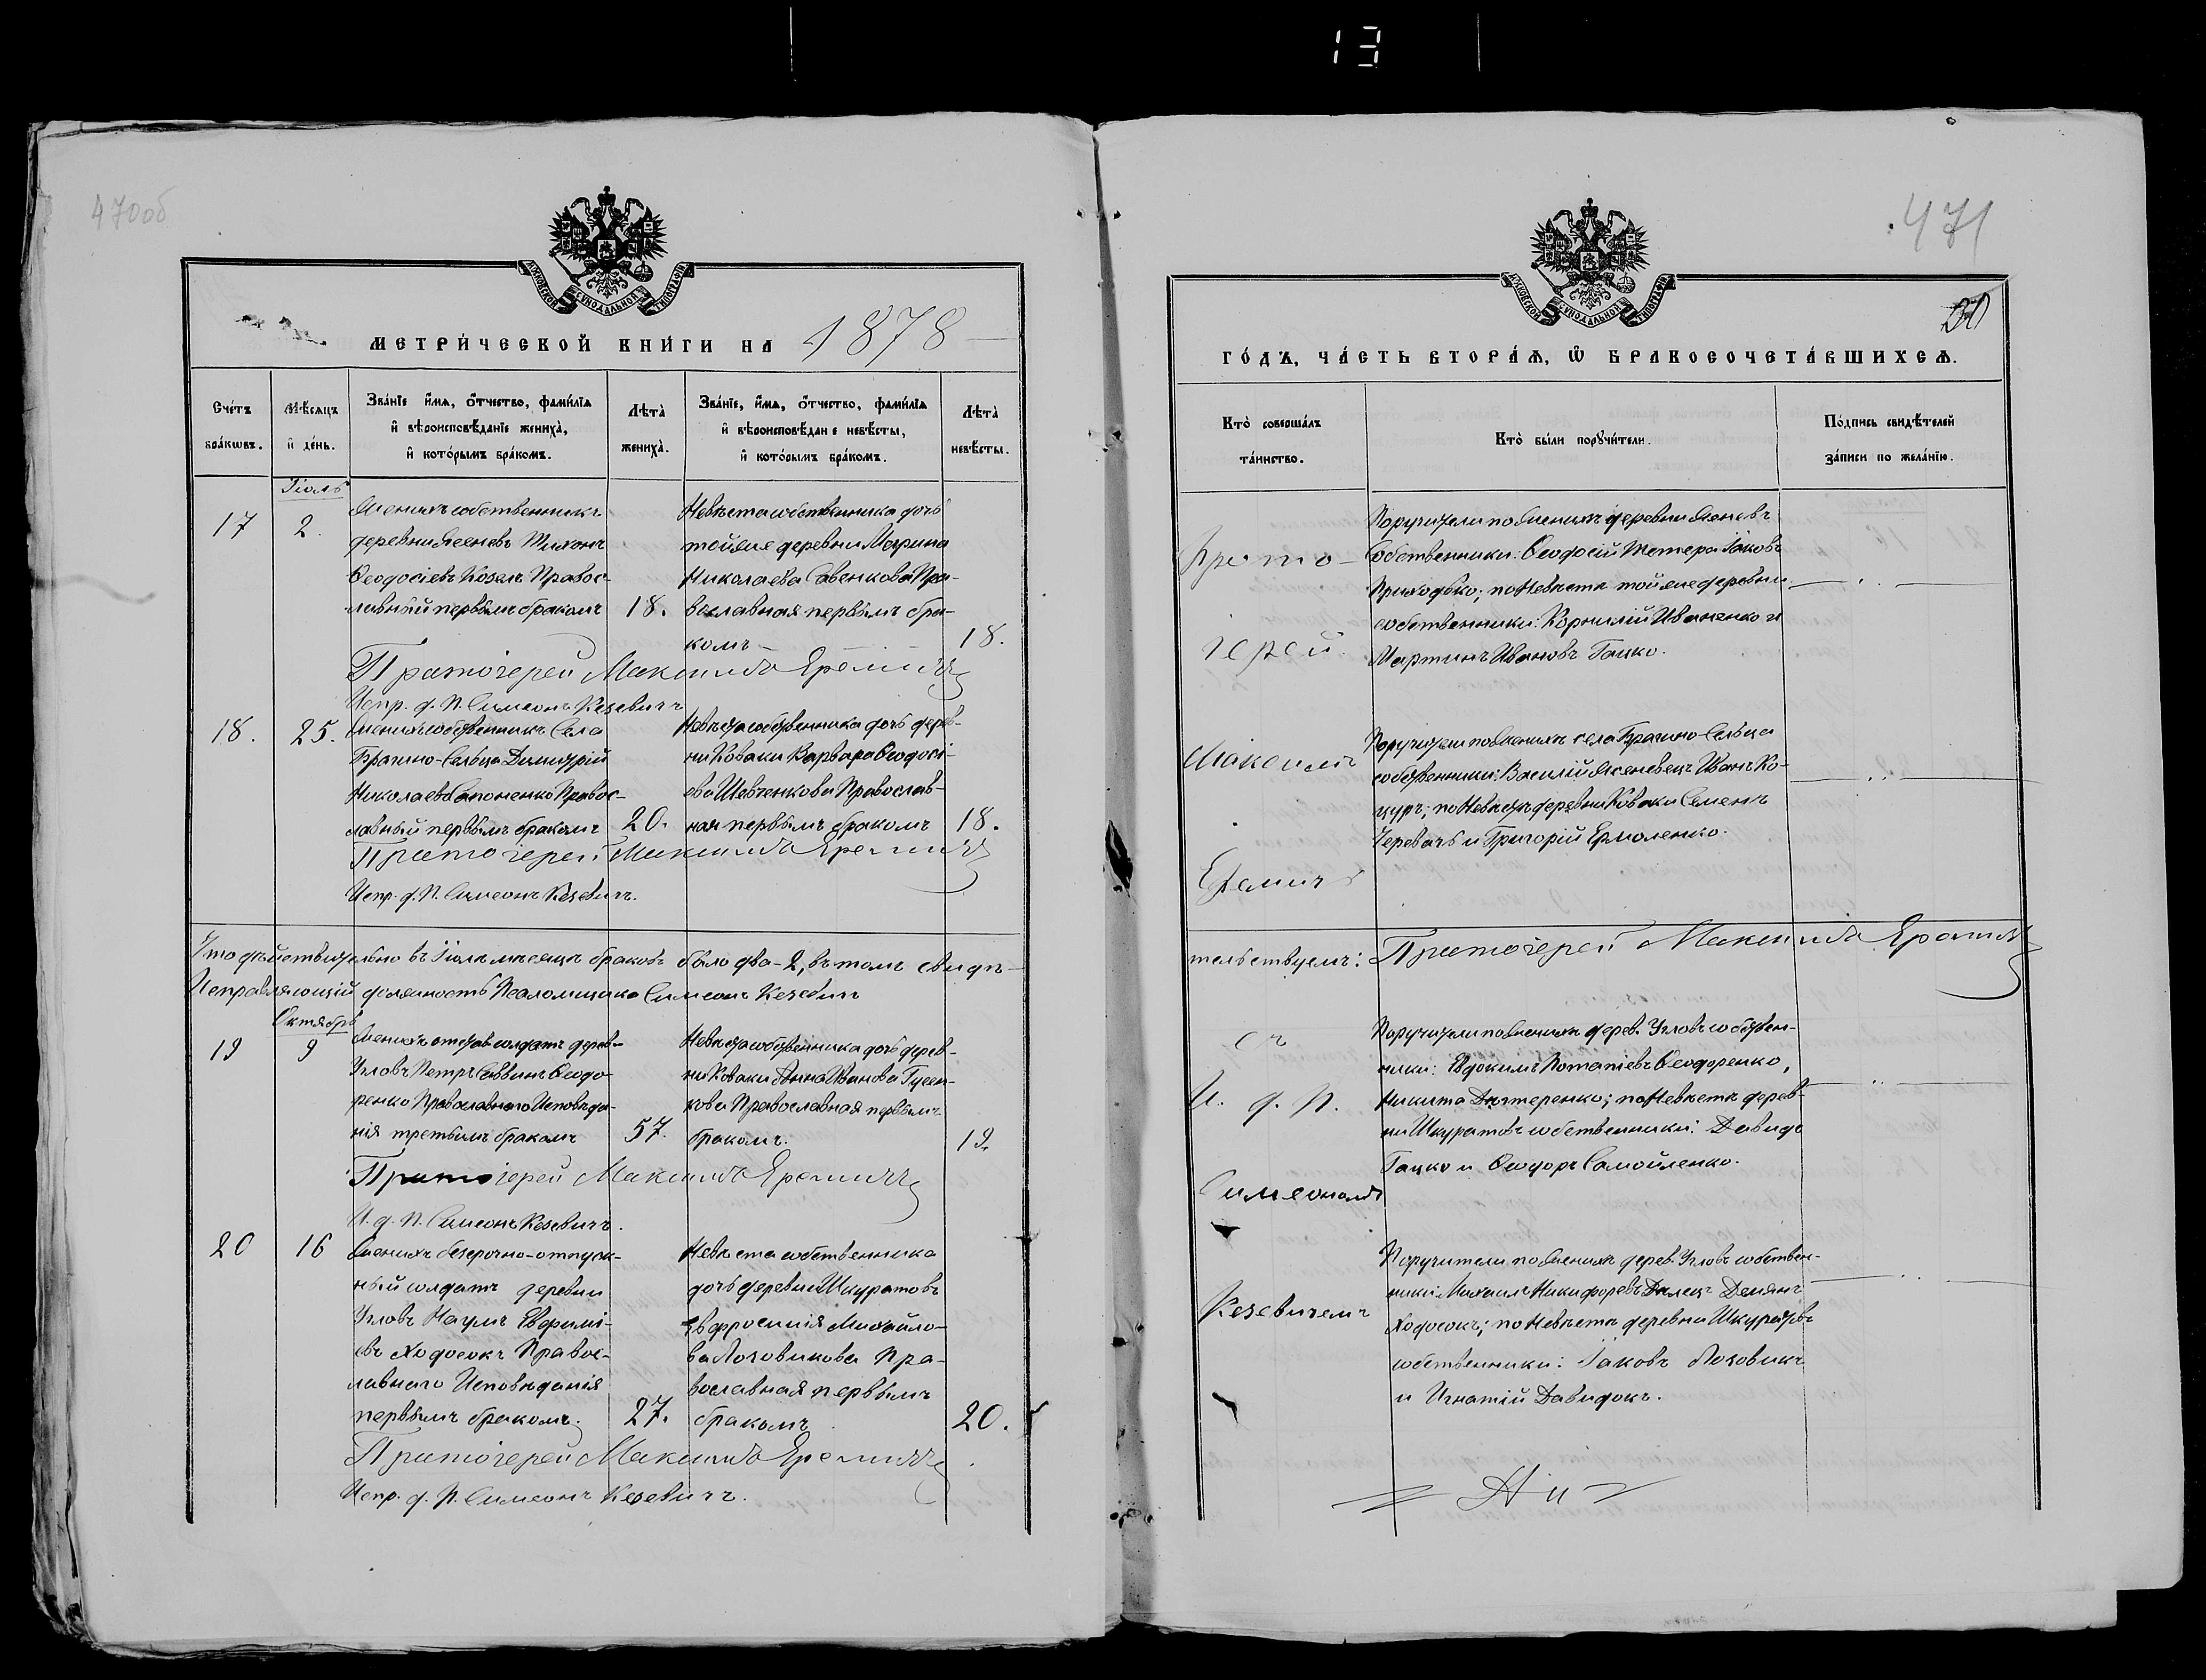 13
470об
МОСКОВСКОЙ СУНОДАЛЬНОЙ ТИПОГРАФІИ
МЕТРИ́ЧЕСКОЙ КНИ́ГИ НА 1878
Счéтъ бра́кѡвъ.
Мѣ́сяцъ и҆ де́нь.
Зва́нїе и҆́мѧ, ѻ҆́тчество, фами́лїѧ
и҆ вѣроисповѣ́данїе жениха̀,
и҆ кото́рымъ бра́комъ.
Лѣта̀ жениха̀.
Зва́нїе, и҆́мѧ, ѻ҆́тчество, фами́лїѧ
и҆ вѣроисповѣ́данїе невѣ́сты,
и҆ кото́рымъ бра́комъ.
Лѣта̀ невѣ́сты.
Іюль
17
2.
Женихъ собственникъ
деревни Ясеневъ Тихонъ
Ѳеодосіевъ Козелъ Правос-
лавный первымъ бракомъ
18.
Невѣста собственника дочь
тойже деревни Марина
Николаева Савенкова Пра-
вославная первымъ бра-
комъ
18.
Протоіерей Максимъ Еремичъ
Испр. д. П. Симеонъ Кезевичъ
18.
25.
Женихъ собственникъ Села
Брагино-Сельца Димитрій
Николаевъ Сапоненко Правос-
лавный первымъ бракомъ
20.
Невѣста собственника дочь дерев-
ни Коваки Варвара Ѳеодосі-
ева Шевченкова Православ-
ная первымъ бракомъ
18.
Протоіерей Максимъ Еремичъ
Испр. д. П. Симеонъ Кезевичъ.
Что дѣйствительно въ Іюлѣ мѣсяцѣ браковъ было два-2, въ томъ свидѣ-
Исправляющій должность Псаломщика Симеонъ Кезевичъ
Октябрь
19
9
Женихъ отстав. солдатъ дерев-
Угловъ Петръ Саввинъ Ѳеодо-
ренко Православнаго Исповѣда-
нія третьимъ бракомъ
57.
Невѣста собственника дочь дерев-
ни Коваки Анна Иванова Гусен-
кова Православная первымъ
бракомъ.
19.
Протоіерей Максимъ Еремичъ
И. д. П. Симеонъ Кезевичъ.
20
16
Женихъ безсрочно-отпуск-
ный солдатъ деревни
Угловъ Наумъ Евфимі-
евъ Ходосокъ Правос-
лавнаго Исповѣданія
первымъ бракомъ.
27.
Невѣста собственника
дочь деревни Шкуратовъ
Евфросинія Михайло-
ва Лозовикова Пра-
вославная первымъ
бракомъ
20.
Протоіерей Максимъ Еремичъ
Испр. д. П. Симеонъ Кезевичъ.
471
МОСКОВСКОЙ СУНОДАЛЬНОЙ ТИПОГРАФІИ
ГО́ДЪ, ЧА́СТЬ ВТОРА́Ѧ, Ѿ БРАКОСОЧЕТА́ВШИХСѦ.
Кто̀ соверша́лъ та́инство.
Кто̀ бы́ли порꙋчи́тели.
По́дпись свидѣ́телей за́писи по жела́нїю.
Прото-
іерей
Максимъ
Еремичъ
Поручители по Женихѣ деревни Ясеневъ
собственники: Ѳеодосій Тетера Іаковъ
Приходько; по Невѣстѣ тойже деревни
собственники: Корнилій Иваненко и
Мартинъ Ивановъ Гацко.
Поручители по Женихѣ села Брагино-Сельца
собственники: Василій Ясеневецъ Иванъ Ко-
цуръ; по Невѣстѣ деревни Коваки Семенъ
Черевачъ и Григорій Ермоленко.
тельствуемъ: Протоіерей Максимъ Еремичъ
съ
И. д. П.
Симеономъ
Кезевичемъ
Поручители по Женихѣ дерев. Угловъ собствен-
ники: Евдокимъ Потапіевъ Ѳеодоренко,
Никита Дегтеренко; по Невѣстѣ дерев-
ни Шкуратовъ собственники: Давидъ
Гацко и Ѳеодоръ Самойленко.
Поручители по Женихѣ дерев. Угловъ собствен-
ники: Михаилъ Никифоровъ Демянъ
Ходосокъ; по Невѣстѣ деревни Шкуратовъ
собственники: Іаковъ Лозовикъ
и Игнатій Давидокъ.